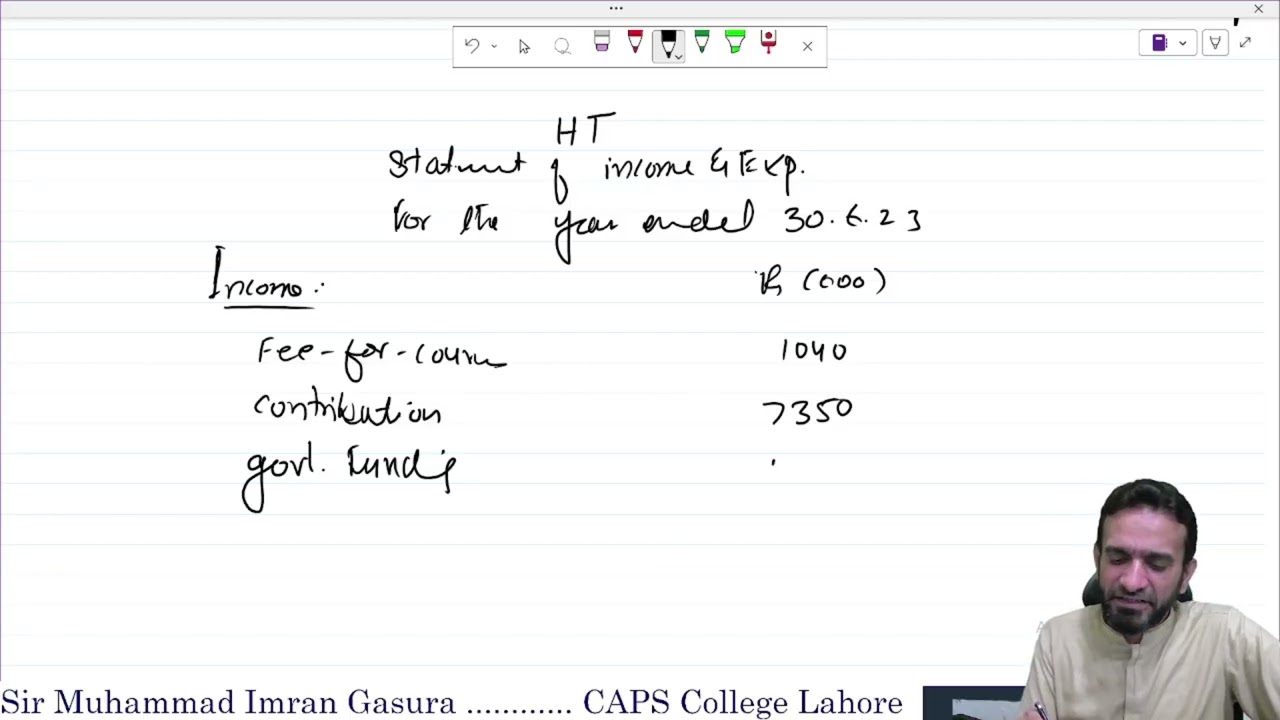 HT
Statment of income & Exp.
For the year ended 30.6.23
Income:
Rs (000)
Fee-for-course 1040
contribution 7350
govt. Funds
Sir Muhammad Imran Gasura ............ CAPS College Lahore